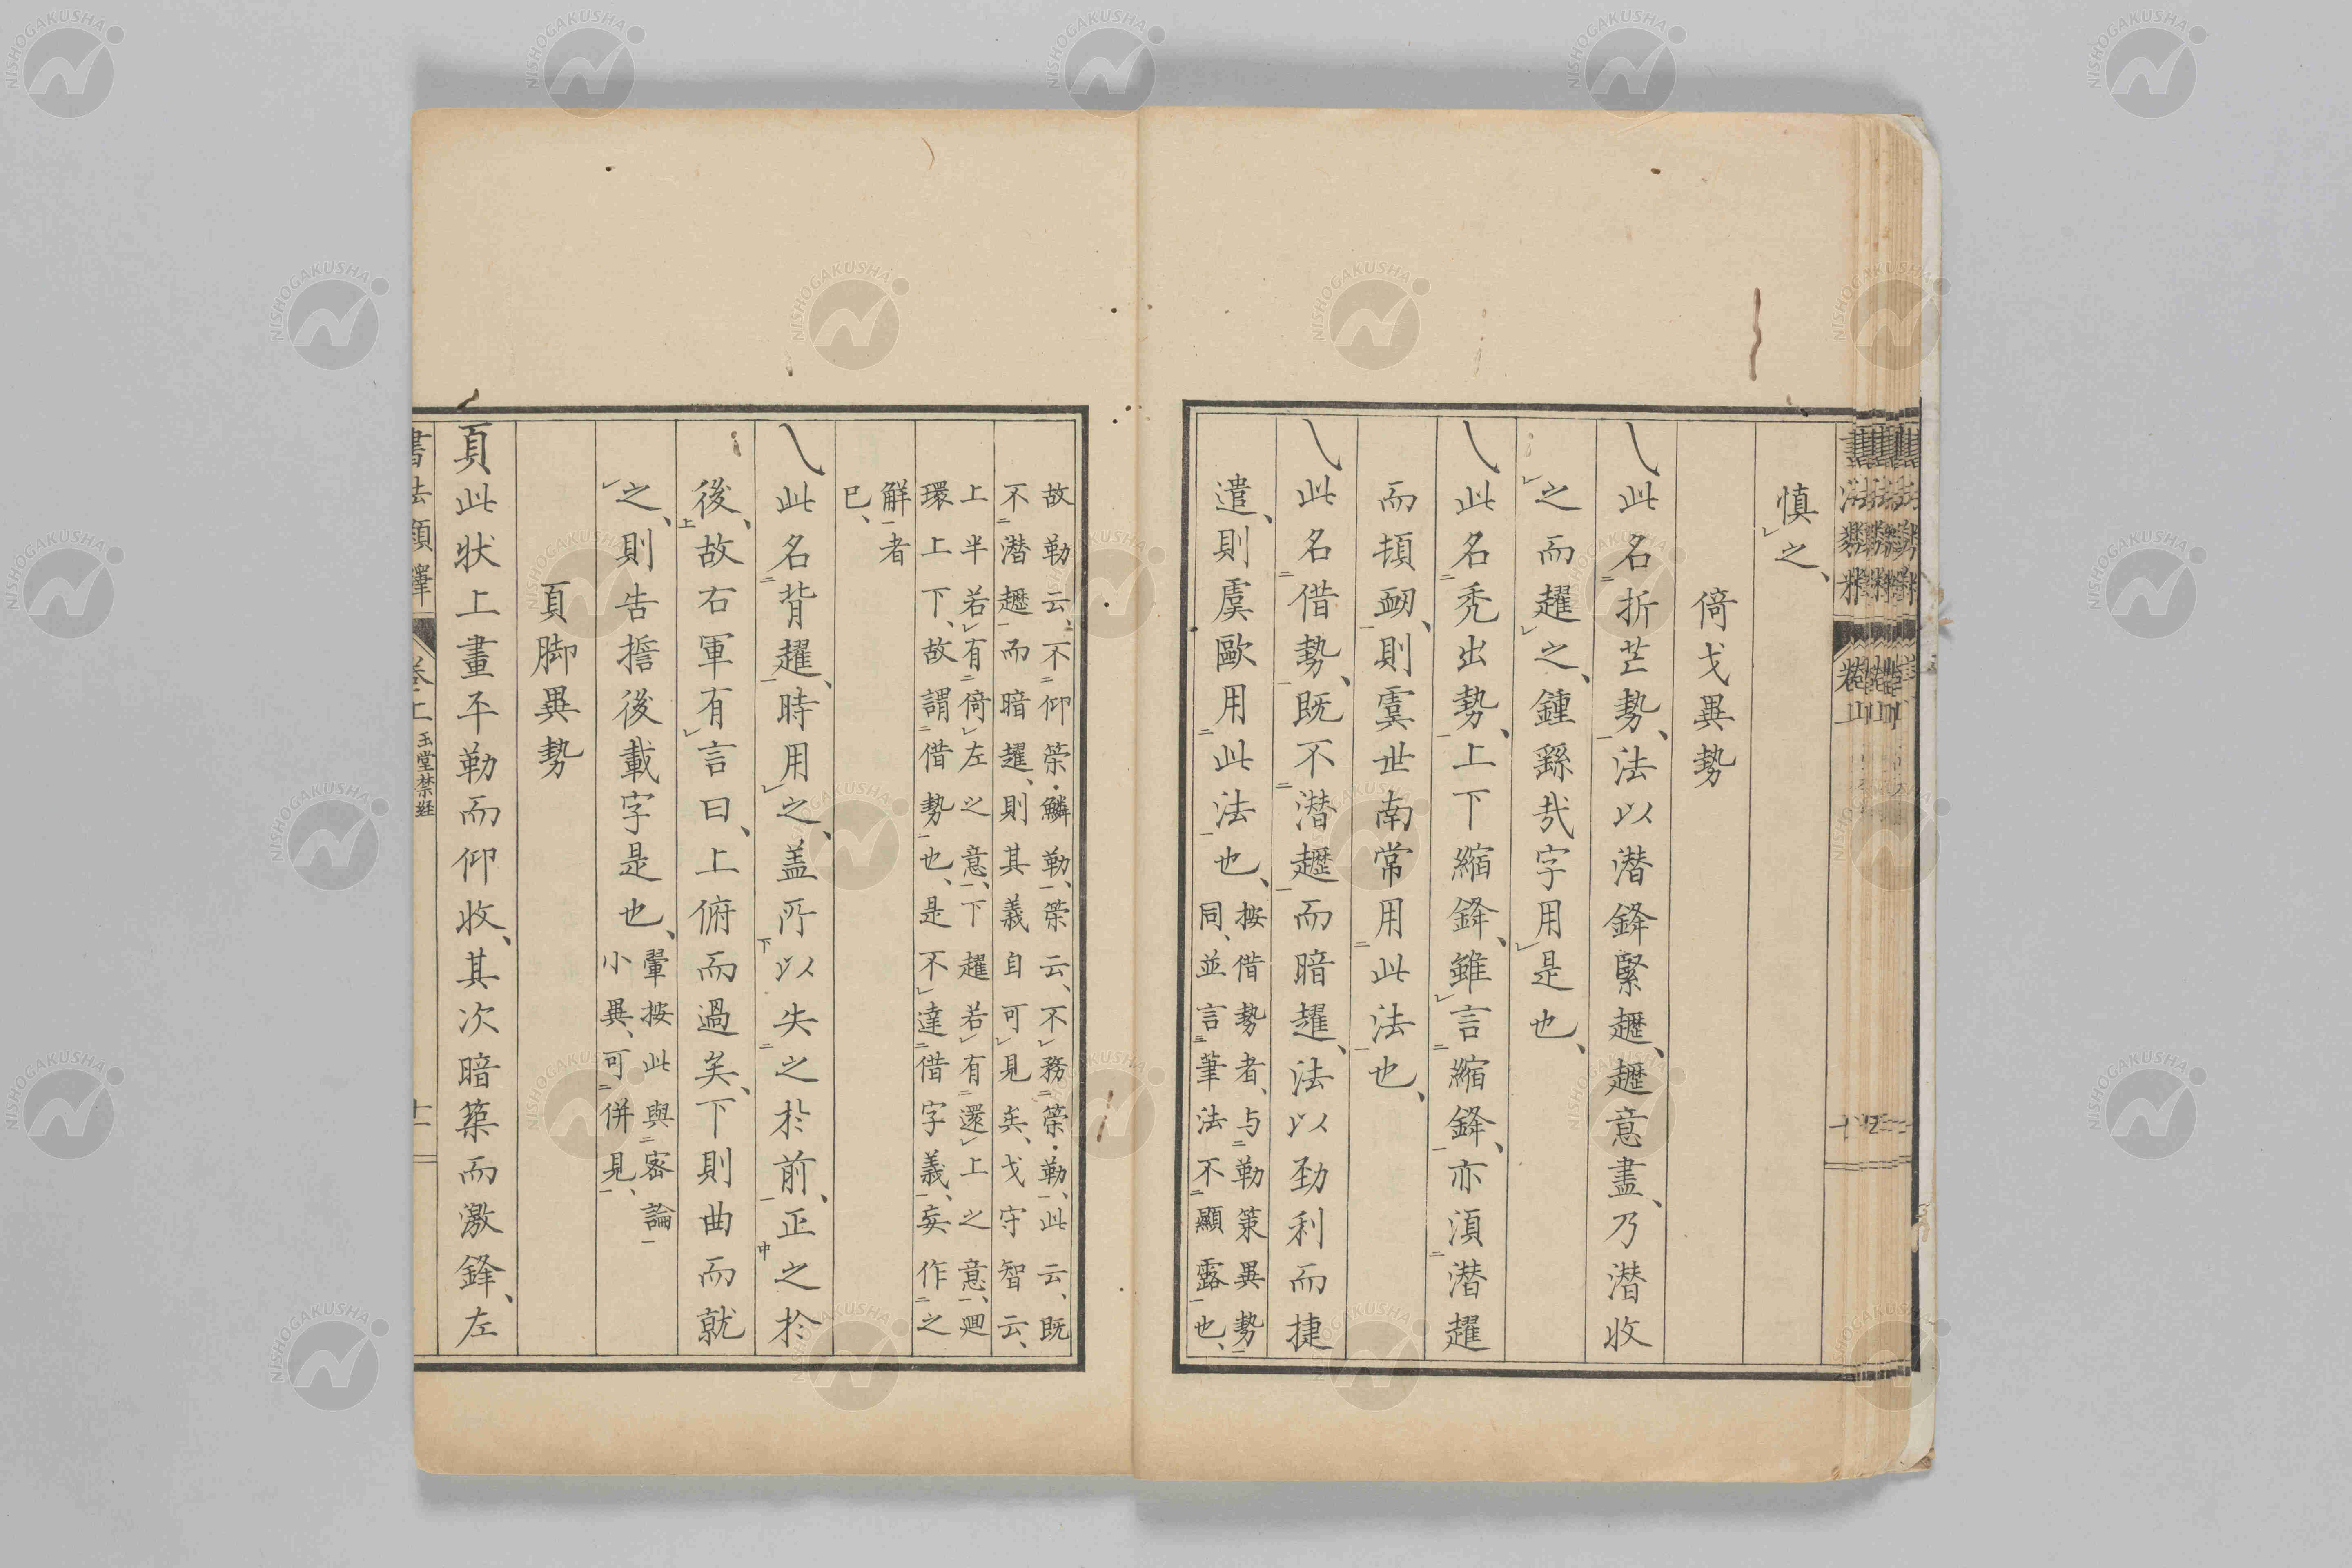 慎之、
倚戈異勢
㇏此名折芒勢、法以潛鋒緊趯、趯意盡、乃潛收
之而趯之、鍾繇哉字用是也、
㇏此名禿出勢、上下縮鋒、雖言縮鋒、亦須潛趯
而頓衂、則虞世南常用此法也、
㇏此名借勢、既不潛趯而暗趯、法以勁利而捷
遣、則虞歐用此法也、按借勢者、与勒策異勢
同、並言筆法不顯露也、
故勒云、不仰策・鱗勒、策云、不務策・勒、此云、既
不潛趯而暗趯、則其義自可見矣、戈守智云、
上半若有倚左之意、下趯若有還上之意、迴
環上下、故謂借勢也、是不達借字義、妄作之
解者
已、
㇏此名背趯、時用之、蓋所以失之於前、正之於
後、故右軍有言曰、上俯而過矣、下則曲而就
之、則告誓後載字是也、翬按此與密論
小異、可併見、
頁脚異勢
頁此狀上畫平勒而仰收、其次暗築而激鋒、左
書法類釋 卷上 玉堂禁経 十一
NISHOGAKUSHA